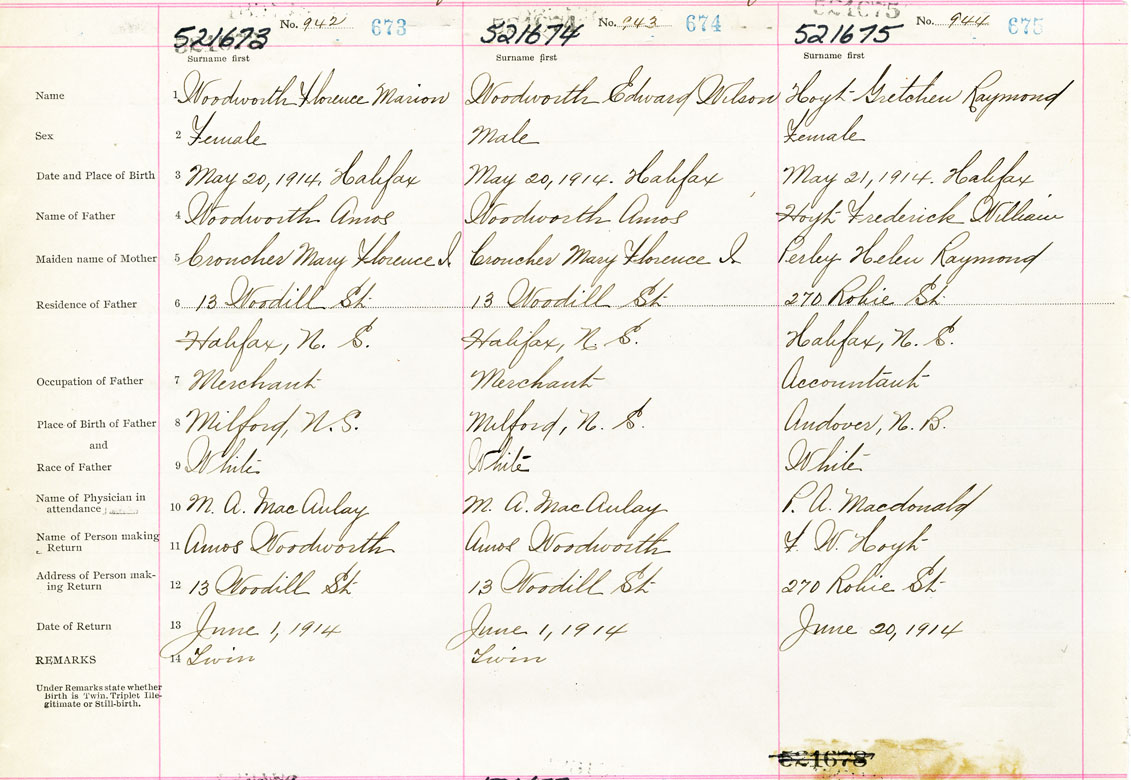 No. 942 673 No. 943 674 No. 944 675
521673 521674 521675
Surname first Surname first Surname first
Name 1 Woodworth Florence Marion Woodworth Edward Wilson Hoyt Gretchen Raymond
Sex 2 Female Male Female
Date and Place of Birth 3 May 20, 1914. Halifax May 20, 1914. Halifax May 21, 1914. Halifax
Name of Father 4 Woodworth Amos Woodworth Amos Hoyt Frederick William
Maiden name of Mother 5 Croucher Mary Florence I. Croucher Mary Florence I. Perley Helen Raymond
Residence of Father 6 13 Woodill St. 13 Woodill St. 270 Robie St.
Halifax, N. S. Halifax, N. S. Halifax, N. S.
Occupation of Father 7 Merchant Merchant Accountant
Place of Birth of Father 8 Milford, N.S. Milford, N. S. Andover, N. B.
and
Race of Father 9 White White White
Name of Physician in
attendance 10 M. A. MacAulay M. A. MacAulay P. A. Macdonald
Name of Person making
Return 11 Amos Woodworth Amos Woodworth F. W. Hoyt
Address of Person mak-
ing Return 12 13 Woodill St. 13 Woodill St. 270 Robie St.
Date of Return 13 June 1, 1914 June 1, 1914 June 20, 1914
REMARKS 14 Twin Twin
Under Remarks state whether
Birth is Twin, Triplet Ille-
gitimate or Still-birth.
521678